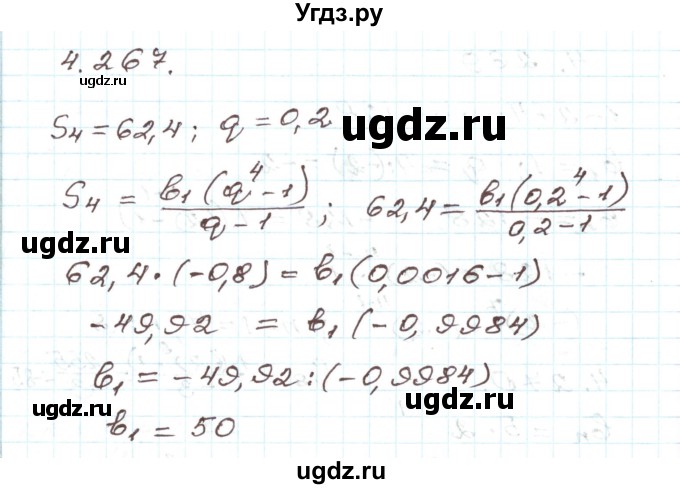 Угдз.ру
4.267.
ugdz.ru
S₄ = 62,4; q = 0,2
ugdz.ru
S₄ = b₁(q⁴-1)/q-1; 62,4 = b₁(0,2⁴-1)/0,2-1
ugdz.ru
62,4·(-0,8) = b₁(0,0016-1)
ugdz.ru
-49,92 = b₁(-0,9984)
b₁ = -49,92:(-0,9984)
ugdz.ru
ugdz.ru
b₁ = 50
ugdz.ru
ugdz.ru